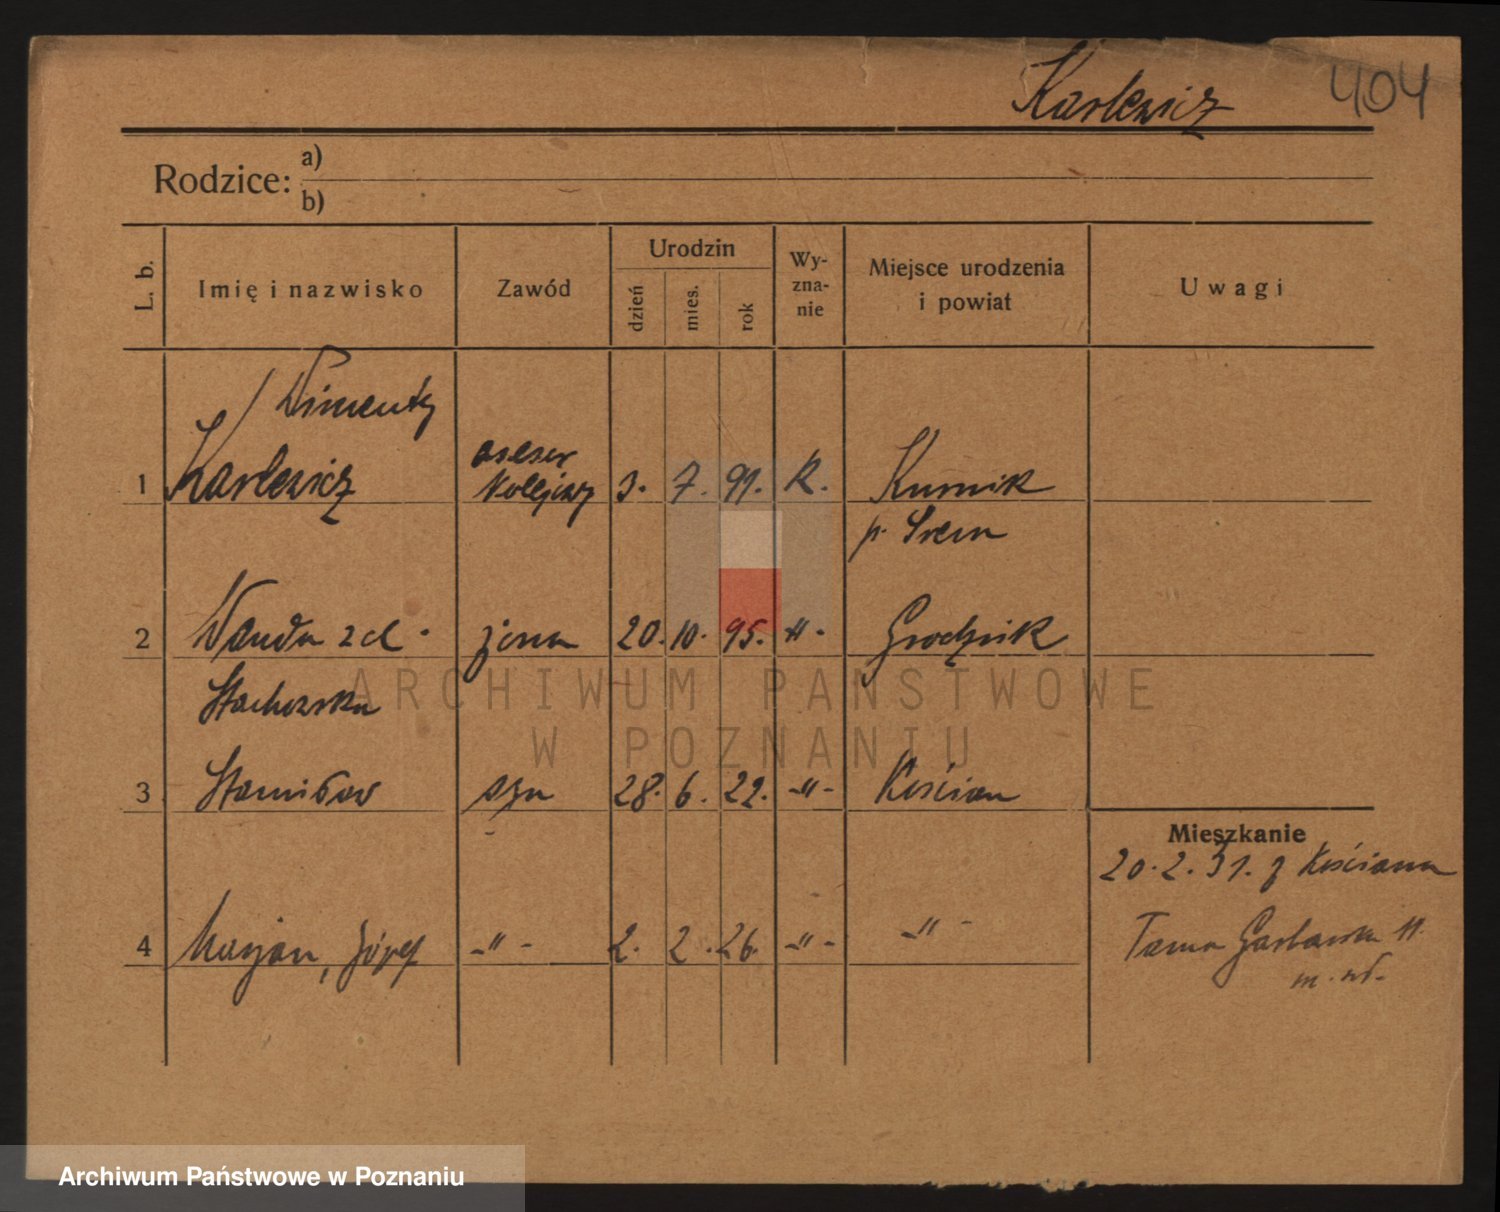 Karlewicz 404
Rodzice: a)
b)
L. b. Imię i nazwisko Zawód Urodzin Wy-zna-nie Miejsce urodzenia i powiat Uwagi
dzień mies. rok
Karlewicz
asesor
1 kolejowy 3. 7. 91. k. Kurnik
p. Srem
2 Wanda z d. żona 20. 10. 95. -"- Grodzisk
Stachowska
3 Stanisław syn 28. 6. 22. -"- Kościan
Mieszkanie
20. 2. 31. z Kościana
4 Marjan, Józef -"- 2. 2. 26. -"- -"-
Tama Garbarska 11.
ARCHIWUM PAŃSTWOWE
W POZNANIU
Archiwum Państwowe w Poznaniu